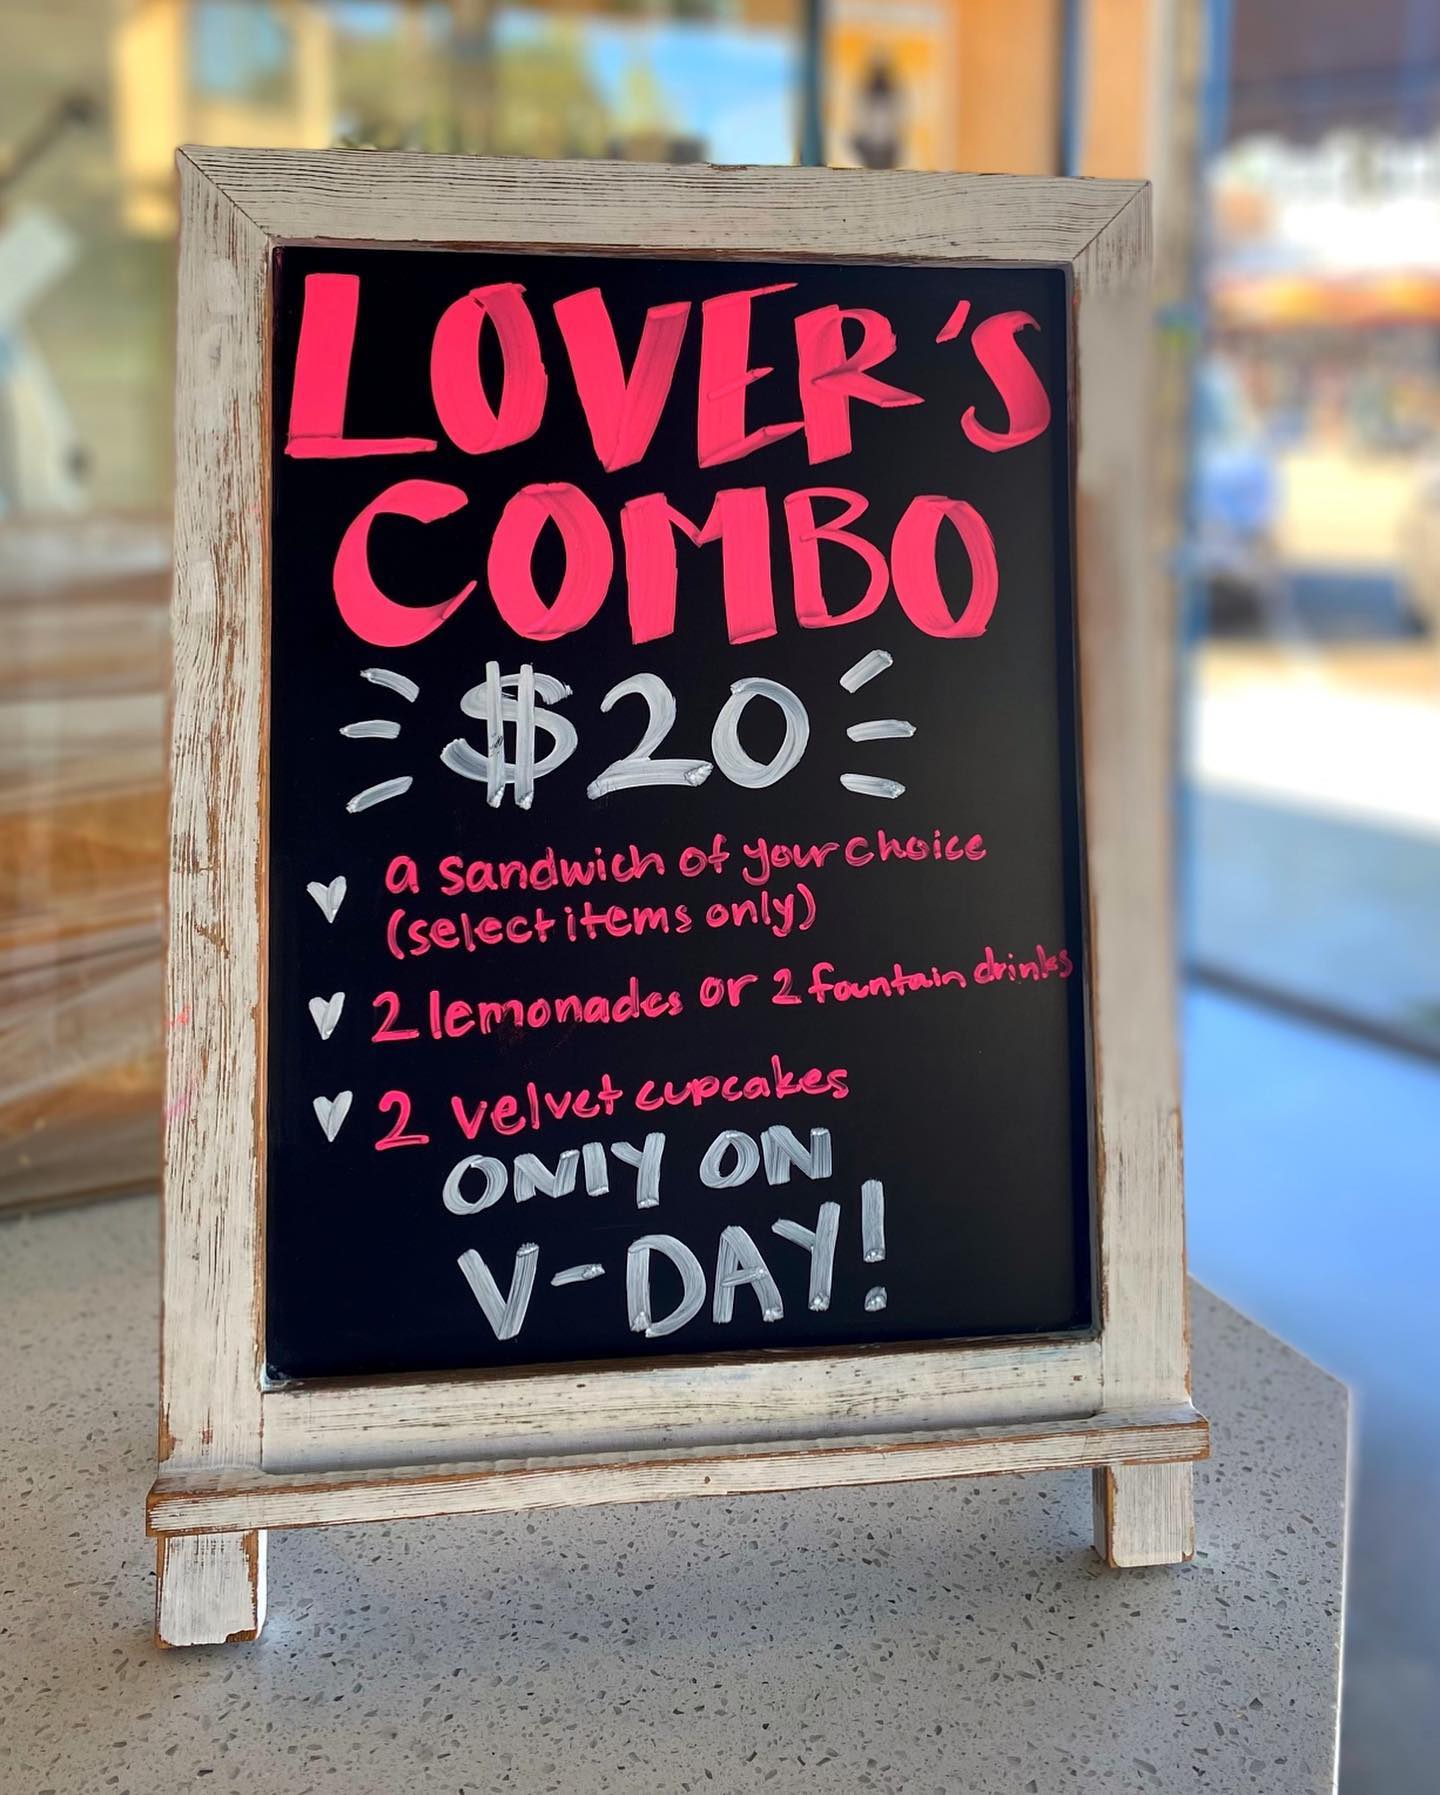 LOVER'S
COMBO
$20
a sandwich of your choice
(select items only)
2 lemonades or 2 fountain drinks
2 velvet cupcakes
ONLY ON
V-DAY!